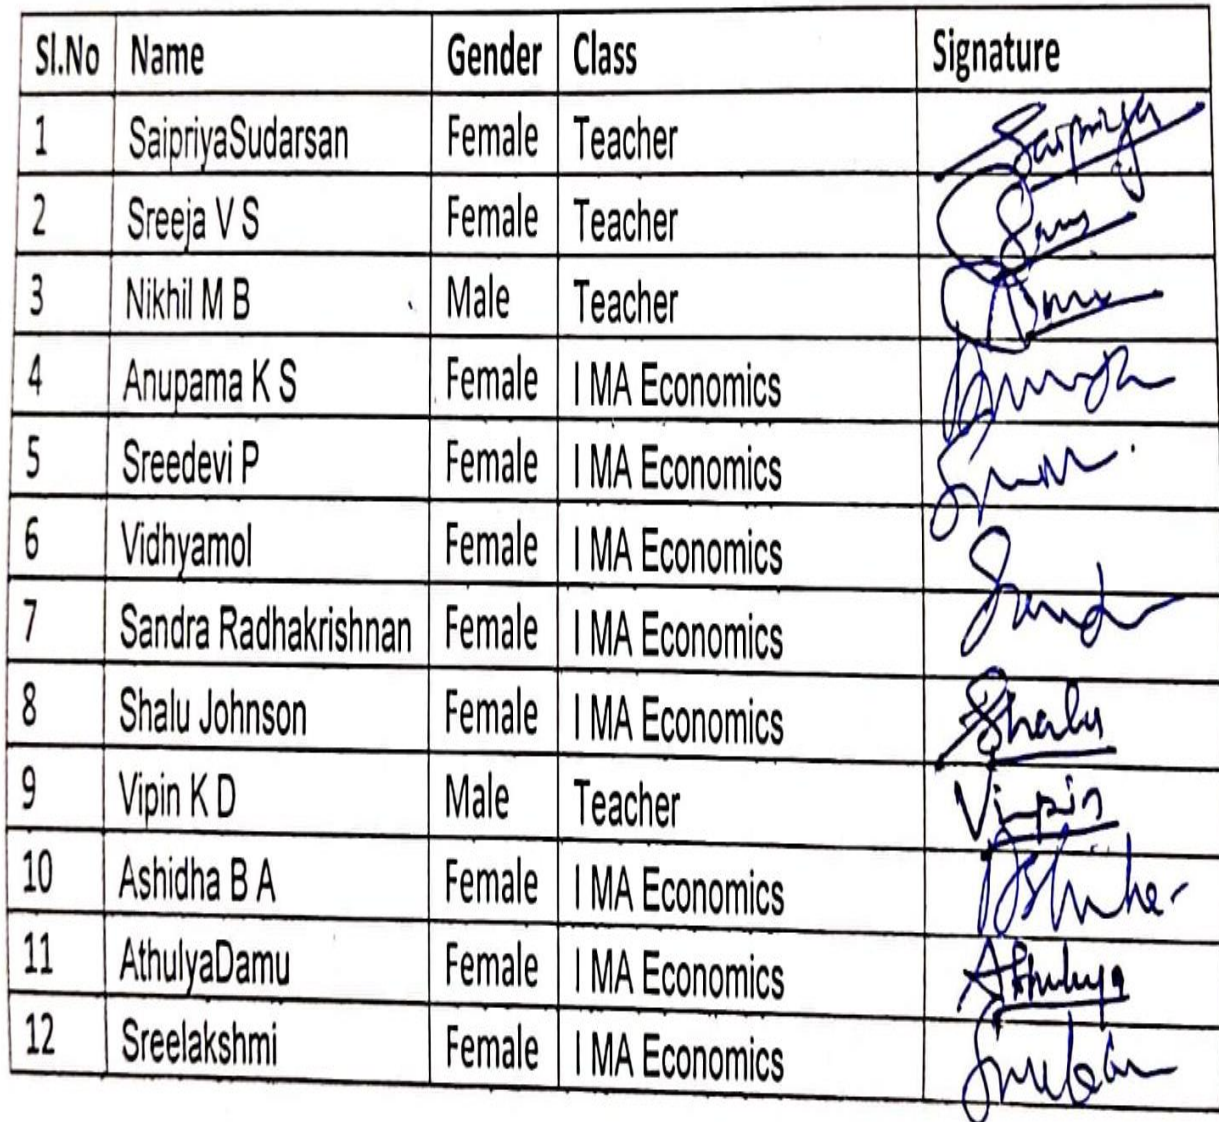 Sl.No Name Gender Class Signature
1 SaipriyaSudarsan Female Teacher Saipriya
2 Sreeja V S Female Teacher
3 Nikhil M B Male Teacher
4 Anupama K S Female I MA Economics
5 Sreedevi P Female I MA Economics
6 Vidhyamol Female I MA Economics
7 Sandra Radhakrishnan Female I MA Economics
8 Shalu Johnson Female I MA Economics Shalu
9 Vipin K D Male Teacher Vipin
10 Ashidha B A Female I MA Economics
11 AthulyaDamu Female I MA Economics Athulya
12 Sreelakshmi Female I MA Economics